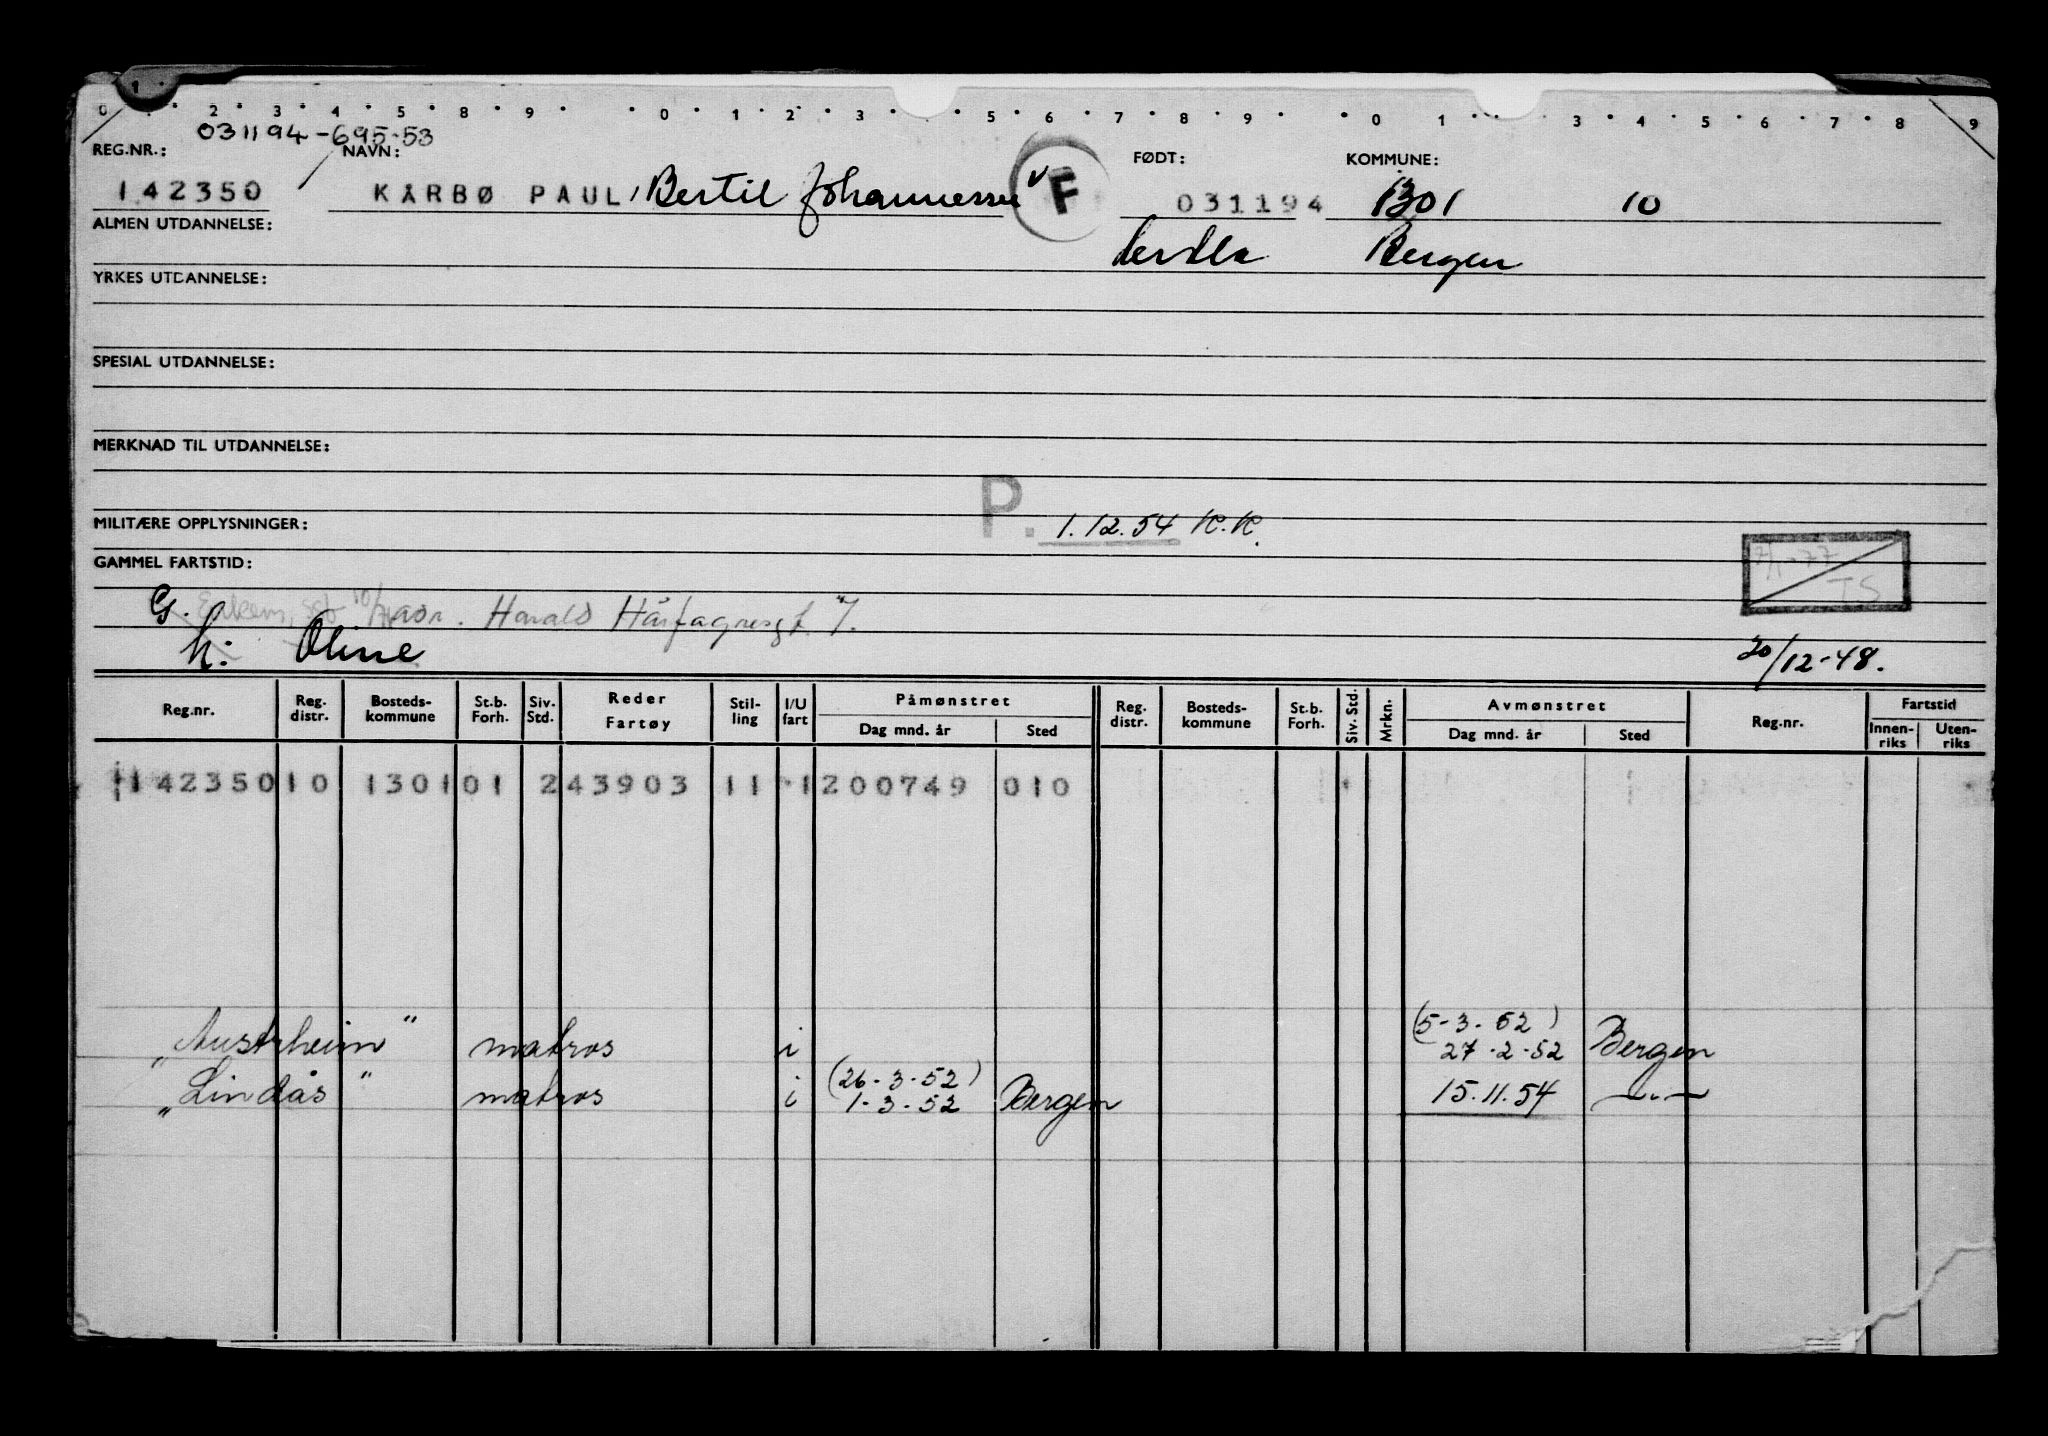 0 1 2 3 4 5 8 9 0 1 2 3 5 6 7 8 9 0 1 3 4 5 6 7 8 9
031194-695-53
REG.NR.: NAVN: FØDT: KOMMUNE:
142350 KÅRBØ PAUL, Bertil Johannessen F 031194 1301 10
ALMEN UTDANNELSE:
Herdla Bergen
YRKES UTDANNELSE:
SPESIAL UTDANNELSE:
MERKNAD TIL UTDANNELSE:
MILITÆRE OPPLYSNINGER: P. 1.12.54 K.K.
GAMMEL FARTSTID:
TS
G. Harald Hårfagresgt. 7.
h: Oline 20/12-48.
Reg.nr. Reg. distr. Bosteds-kommune St.b. Forh. Siv. Std. Reder Fartøy Stil-ling I/U fart Påmønstret Dag mnd. år Sted Reg. distr. Bosteds-kommune St.b. Forh. Siv. Std. Mrkn. Avmønstret Dag mnd. år Sted Reg.nr. Fartstid Innen-riks Uten-riks
142350 10 1301 01 2 43903 11 1 200749 010
(5-3-52)
„Austrheim" matros i 27-2-52 Bergen
(26-3-52)
„Lindås" matros i 1-3-52 Bergen 15.11.54 —"—